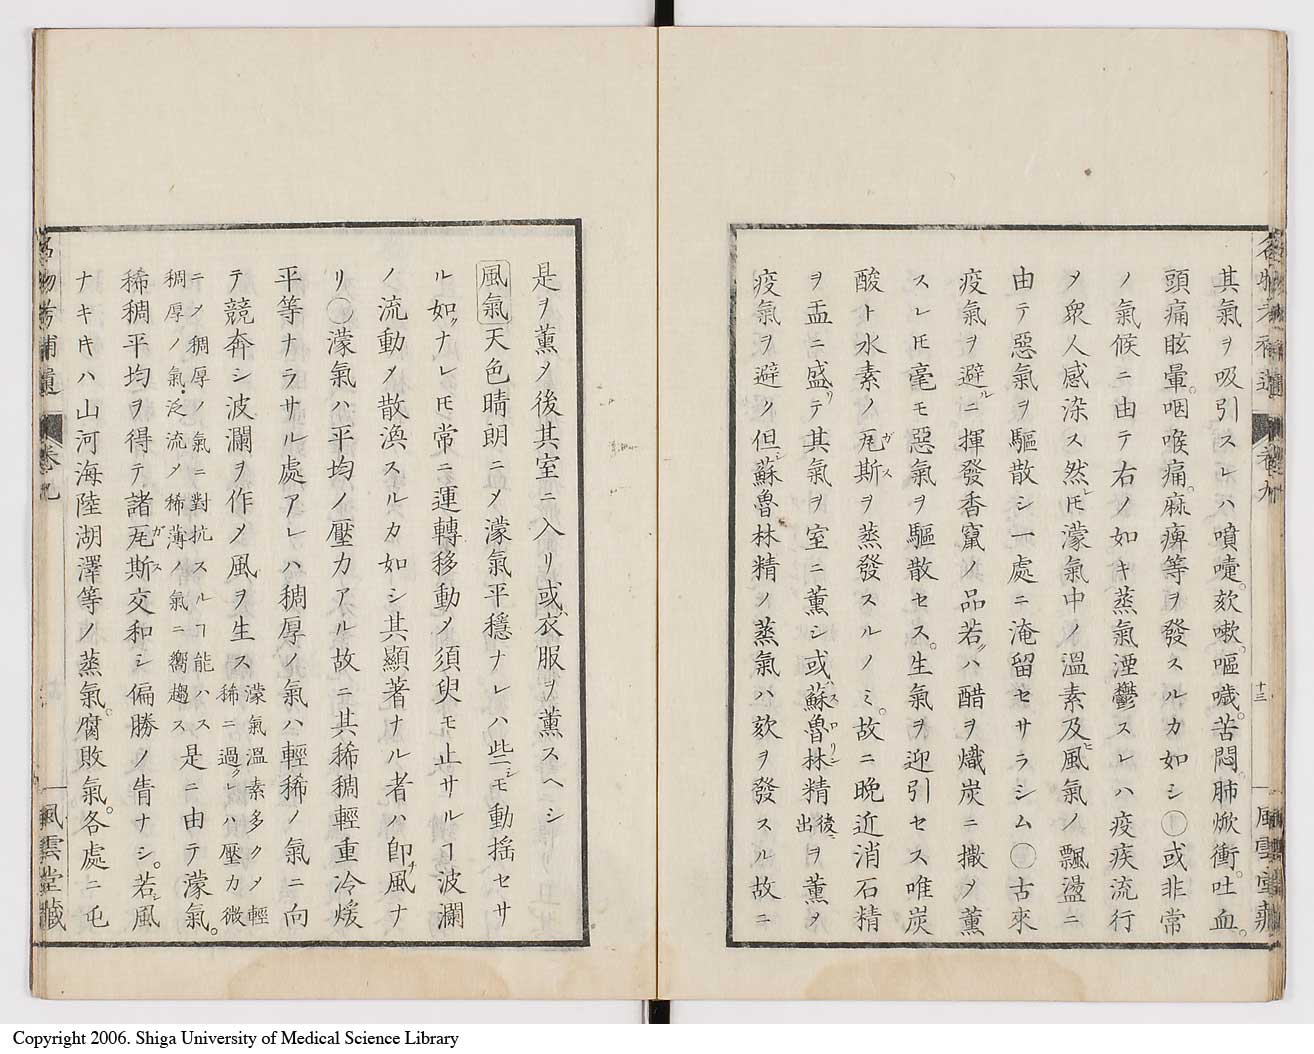 其氣ヲ吸引スレハ噴嚔。欬嗽。嘔噦。苦悶。肺焮衝。吐血。
頭痛眩暈。咽喉痛。麻痺等ヲ發スルカ如シ〇或非常
ノ氣候ニ由テ右ノ如キ蒸氣湮鬱スレハ疫疾流行
メ衆人感染ス然レモ濛氣中ノ溫素及ヒ風氣ノ飄盪ニ
由テ惡氣ヲ驅散シ一處ニ淹留セサラシム〇古來
疫氣ヲ避ルニ揮發香竄ノ品若クハ醋ヲ熾炭ニ撒メ薰
スレモ毫モ惡氣ヲ驅散セス。生氣ヲ迎引セス唯炭
酸ト水素ノ瓦斯ガスヲ蒸發スルノミ。故ニ晩近消石精
ヲ盂ニ盛リテ其氣ヲ室ニ薰シ或蘇魯林スロリン精後ニ出ヲ薰メ
疫氣ヲ避ク但シ蘇魯林精ノ蒸氣ハ欬ヲ發スル故ニ
是ヲ薰メ後其室ニ入リ或ハ衣服ヲ薰スヘシ
風氣天色晴朗ニメ濛氣平穩ナレハ些シモ動揺セサ
ル如クナレモ常ニ運轉移動メ須臾モ止サルヿ波瀾
ノ流動メ散渙スルカ如シ其顯著ナル者ハ卽チ風ナ
リ〇濛氣ハ平均ノ壓力アル故ニ其稀稠輕重冷煖
平等ナラサル處アレハ稠厚ノ氣ハ輕稀ノ氣ニ向
テ競奔シ波瀾ヲ作メ風ヲ生ス濛氣溫素多クメ輕稀ニ過クレハ壓力微
ニメ稠厚ノ氣ニ對抗スルヿ能ハス稠厚ノ氣。泛流メ稀薄ノ氣ニ嚮趨ス是ニ由テ濛氣。
稀稠平均ヲ得テ諸瓦斯ガス交和シ偏勝ノ眚ナシ。若シ風
ナキキハ山河海陸湖澤等ノ蒸氣。腐敗氣。各處ニ屯
名物考補遺
卷九
十三
風雲堂藏
名物考補遺
卷九
風雲堂藏
Copyright 2006. Shiga University of Medical Science Library